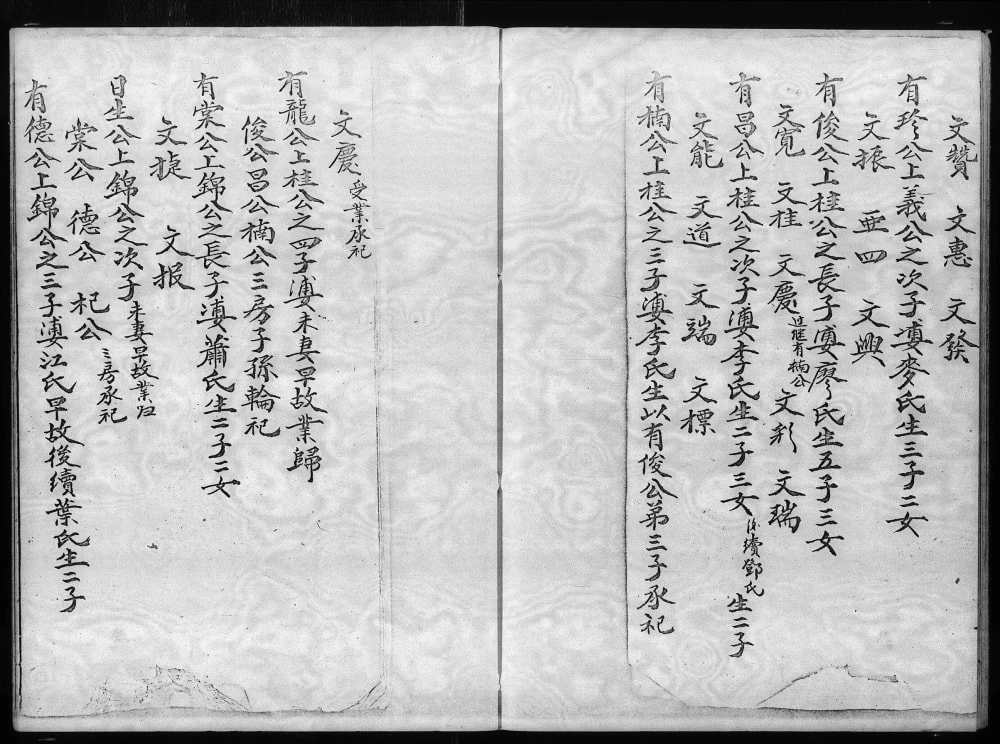 文贊 文惠 文發
有珍公上義公之次子溥麥氏生三子二女
文振 亜四 文興
有俊公上桂公之長子溥廖氏生五子三女
文寬 文桂 文慶过继有楠公 文彩 文瑞
有昌公上桂公之次子溥李氏生二子三女後續鄧氏生二子
文能 文道 文端 文標
有楠公上桂公之三子溥李氏生以有俊公弟三子承祀
文慶受業承祀
有龍公上桂公之四子溥未妻早故業歸
俊公昌公楠公三房子孫輪祀
有棠公上錦公之長子溥蕭氏生二子二女
文㨗 文报
日生公上錦公之次子未妻早故業归
棠公 德公 杞公三房承祀
有德公上錦公之三子溥江氏早故後續葉氏生二子